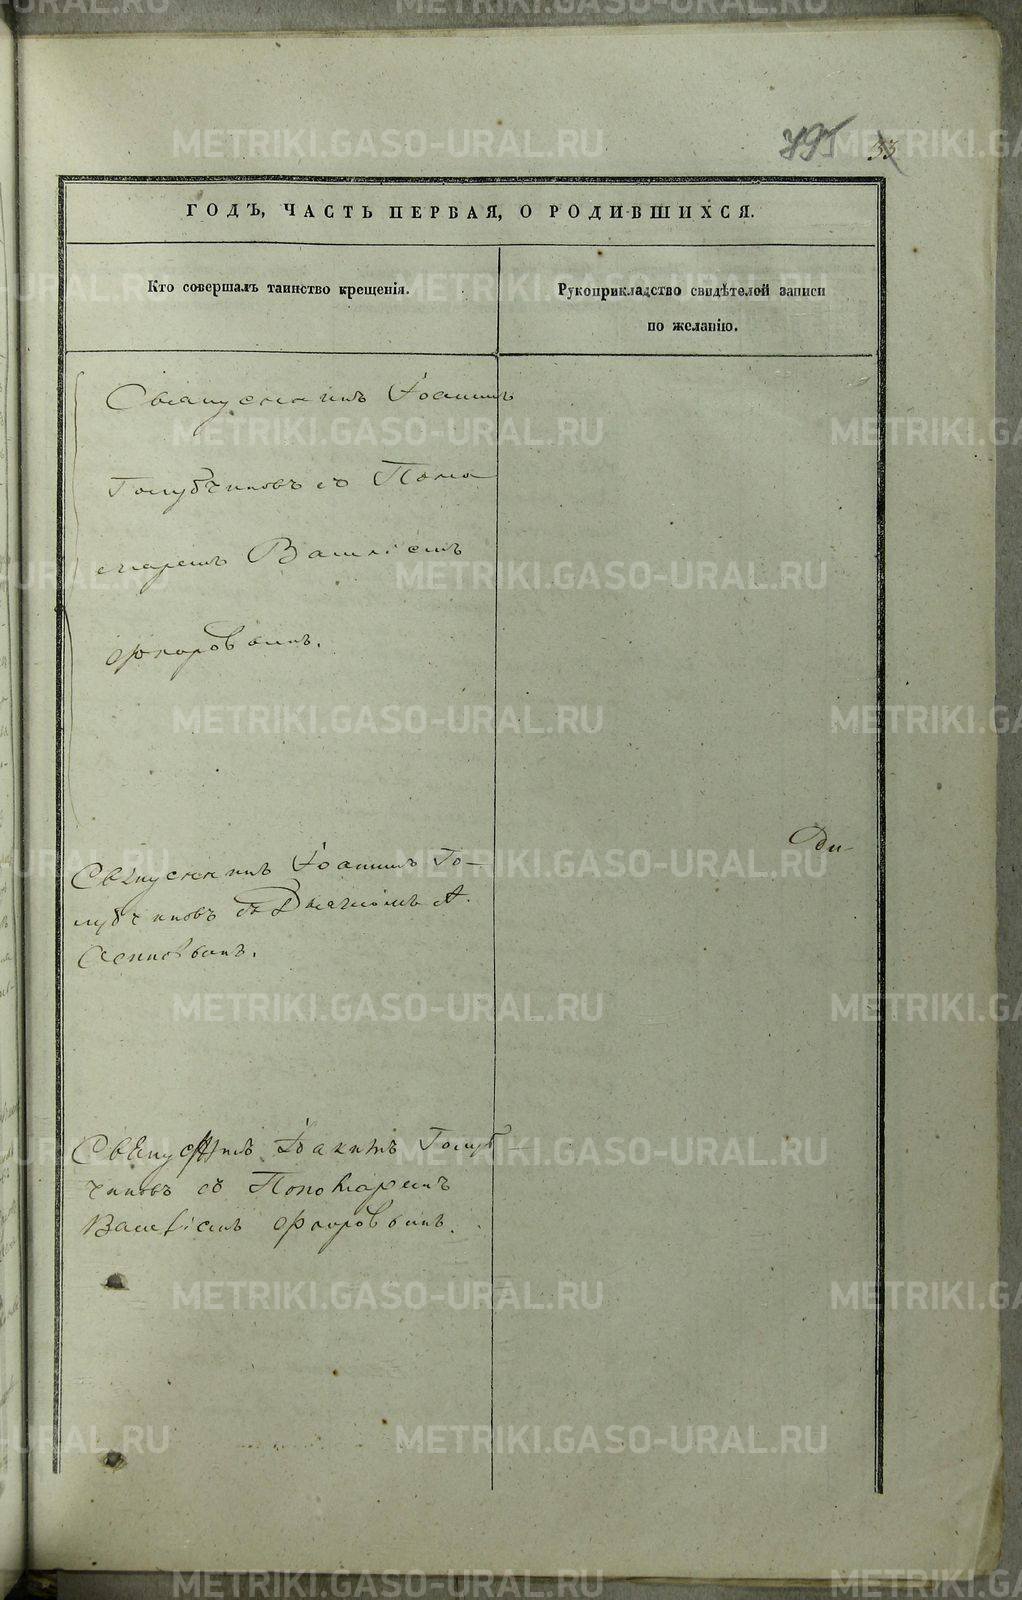 495 53
ГОДЪ, ЧАСТЬ ПЕРВАЯ, О РОДИВШИХСЯ.
Кто совершалъ таинство крещенія.
Рукоприкладство свидѣтелей записи
по желанію.
Священникъ Іоаннъ
Голубчиковъ съ Поно
маремъ Василіемъ
Флоровымъ.
Священникъ Іоаннъ Го-
лубчиковъ съ Дьячкомъ А.
Ди-
Священникъ Іоаннъ Голуб-
чиковъ съ Пономаремъ
Василіемъ Флоровымъ.
METRIKI.GASO-URAL.RU